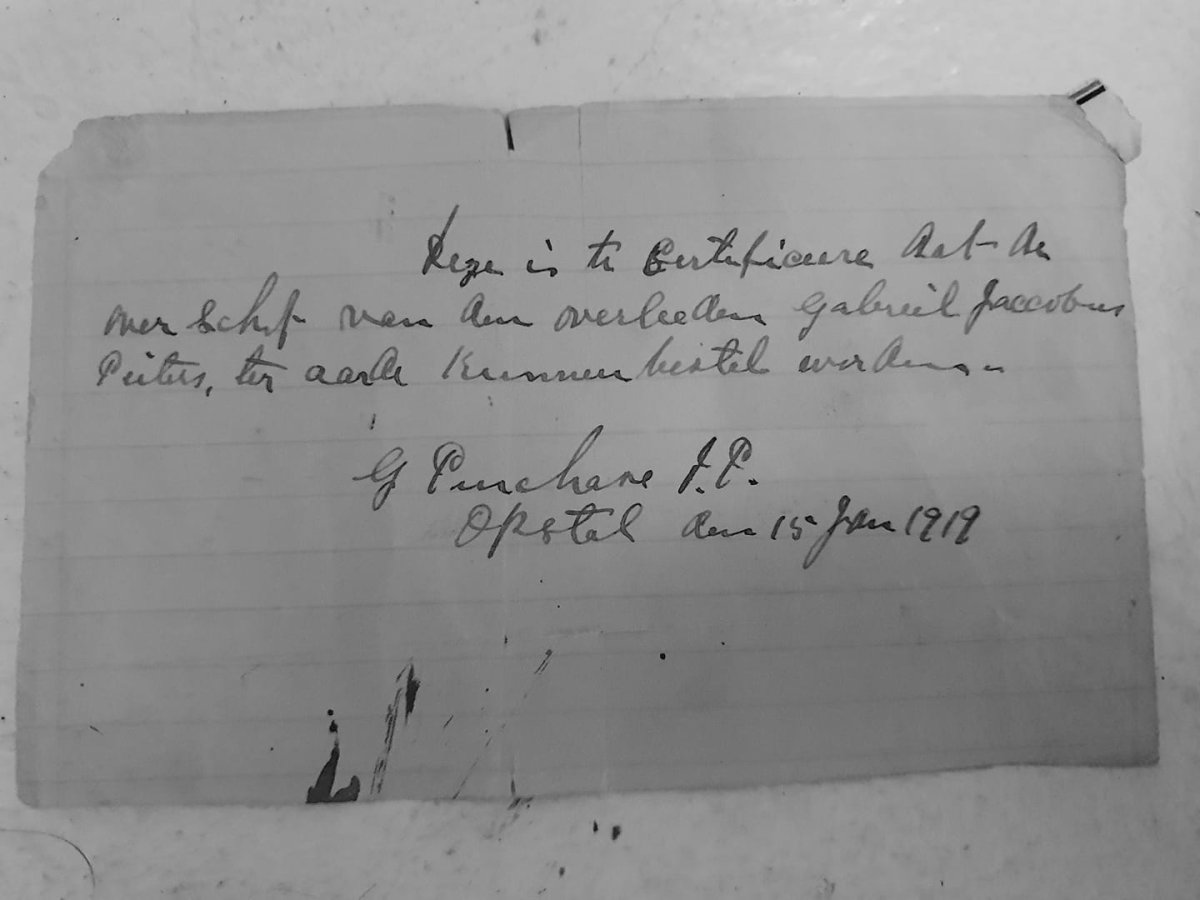 Deze is te Certificeere dat de
over schif van den overleeden Gabreil Jaccobus
Peiters, ter aarde Kunnen bestel worden..
G Purchase J.P.
Opstal den 15 Jan 1919